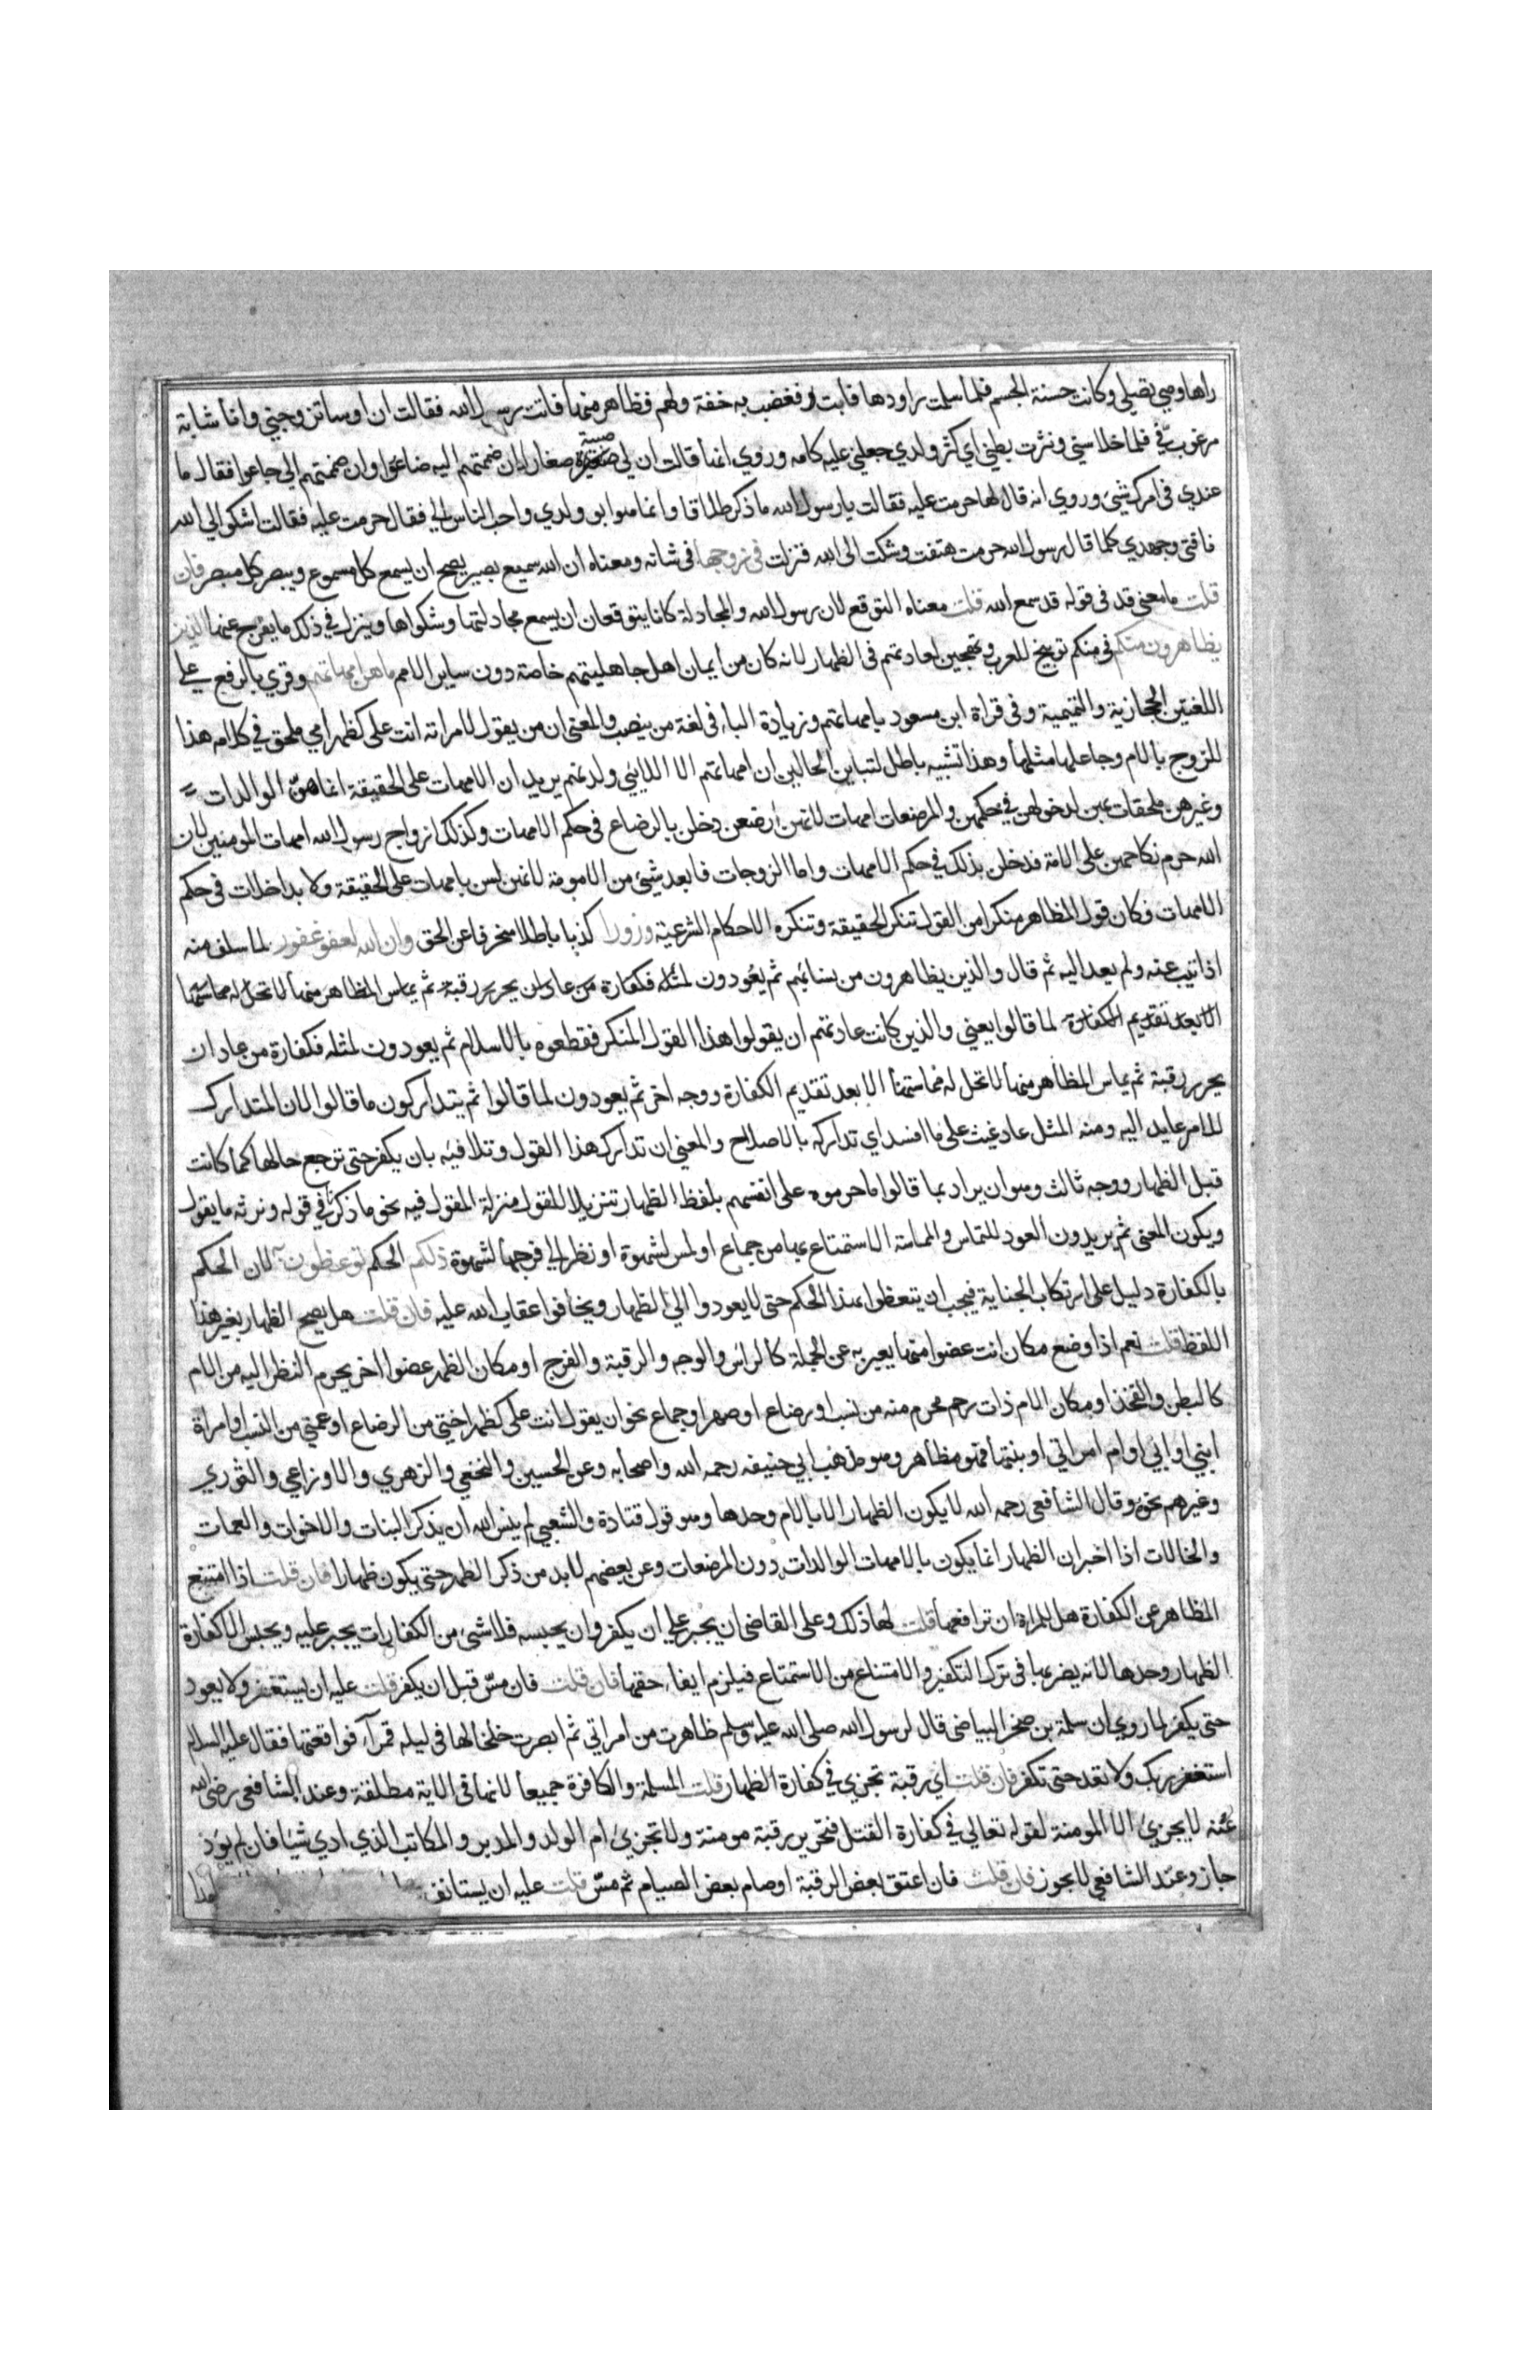 راها وهي تصلي وكانت حسنة الجسم فلما سلمت راودها فابت فغضب به خفة ولمم فظاهر منها فاتت رسول الله فقالت ان اوسا تزوجني وانا شابة
مرغوب في فلما خلا سني ونثرت بطني اي كثر ولدي جعلني عليه كامه وروي انها قالت ان لي صبية صغارا ان ضممتهم اليه ضاعوا وان ضممتهم الي جاعوا فقال ما
عندي في امرك شئ وروي انه قال لها حرمت عليه فقالت يا رسول الله ما ذكر طلاقا وانما هو ابو ولدي واحب الناس الي فقال حرمت عليه فقالت اشكو الي الله
فاقتي وجهدي كلما قال رسول الله حرمت هتفت وشكت الى الله فنزلت في زوجها في شانه ومعناه ان الله سميع بصير يصح ان يسمع كل مسموع ويبصر كل مبصر فان
قلت ما معنى قد في قوله قد سمع الله قلت معناه التوقع لان رسول الله والمجادلة كانا يتوقعان ان يسمع مجادلتها وشكواها وينزل في ذلك ما يفرج عنها الذين
يظاهرون منكم في منكم توبيخ للعرب وتهجين لعادتهم في الظهار لانه كان من ايمان اهل جاهليتهم خاصة دون ساير الامم ما هن امهاتهم وقري بالرفع علي
اللغتين الحجازية والتميمية وفى قراة ابن مسعود بامهاتهم وزيادة الباء في لغة من ينصب والمعنى ان من يقول لامراته انت على كظهر امي ملحق في كلامه هذا
للزوج بالام وجاعلها مثلها وهذا تشبيه باطل لتباين الحالين ان امهاتهم الا اللايئي ولدنهم يريد ان الامهات على الحقيقة انما هن الوالدات
وغيرهن ملحقات بهن لدخولهن في حكمهن والمرضعات امهات لانهن ارضعن دخلن بالرضاع في حكم الامهات وكذلك ازواج رسول الله امهات المومنين لان
الله حرم نكاحهن على الامة فدخلن بذلك في حكم الامهات واما الزوجات فابعد شيئ من الامومة لانهن لسن بامهات على الحقيقة ولا بداخلات في حكم
الامهات فكان قول المظاهر منكرا من القول تنكر الحقيقة وتنكره الاحكام الشرعية وزورا كذبا باطلا منحرفا عن الحق وان الله لعفو غفور لما سلف منه
اذا تيب عنه ولم يعد اليه ثم قال والذين يظاهرون من نسائهم ثم يعودون لمثله فكفارة من عاد ان يحرر رقبة ثم يماس المظاهر منها لا تحل له مماستها
الا بعد تقديم الكفارة لما قالوا يعني والذين كانت عادتهم ان يقولوا هذا القول المنكر فقطعوه بالاسلام ثم يعودون لمثله فكفارة من عاد ان
يحرر رقبة ثم يماس المظاهر منها لا تحل له مماستها الا بعد تقديم الكفارة ووجه اخر ثم يعودون لما قالوا ثم يتداركون ما قالوا لان المتدارك
للامر عايد اليه ومنه المثل عاد غيث على ما افسد اي تداركه بالاصلاح والمعنى ان تدارك هذا القول وتلافيه بان يكفر حتى ترجع حالها كما كانت
قبل الظهار ووجه ثالث وهو ان يراد بما قالوا ما حرموه على انفسهم بلفظ الظهار تنزيلا للقول منزلة المقول فيه نحو ما ذكرنا في قوله ونرثه ما يقول
ويكون المعنى ثم يريدون العود للتماس والمماسة الاستمتاع بها من جماع او لمس لشهوة او نظر الي فرجها لشهوة ذلكم الحكم توعظون به لان الحكم
بالكفارة دليل على ارتكاب الجناية فيجب ان يتعظوا بهذا الحكم حتى لا يعودوا الي الظهار ويخافوا عقاب الله عليه فان قلت هل يصح الظهار بغير هذا
اللفظ قلت نعم اذا وضع مكان انت عضوا منها يعبر به عن الجملة كالراس والوجه والرقبة والفرج او مكان الظهر عضوا اخر يحرم النظر اليه من الام
كالبطن والفخذ او مكان الام ذات رحم محرم منه من نسب او رضاع او صهر او جماع نحو ان يقول انت على كظهر اختي من الرضاع او عمتي من النسب او امراة
ابني او ابي او ام امراتي او بنتها فهو مظاهر وهو مذهب ابي حنيفه رحمه الله واصحابه وعن الحسين والنخعي والزهري والاوزاعي والثوري
وغيرهم نحوه وقال الشافعى رحمه الله لا يكون الظهار الا بالام وحدها وهو قول قتادة والشعبي لم ينس الله ان يذكر البنات والاخوات والعمات
والخالات اذا اخبر ان الظهار انما يكون بالامهات الوالدات دون المرضعات وعن بعضهم لا بد من ذكر الظهر حتى يكون ظهارا فان قلت اذا امتنع
المظاهر عن الكفارة هل للمراة ان ترافعه قلت لها ذلك وعلى القاضى ان يجبر علي ان يكفر وان يحبسه فلا شئ من الكفارات يجبر عليه ويحبس الا كفارة
الظهار وحدها لانه يضر بها في ترك التكفير والامتناع من الاستمتاع فيلزم ايفاء حقها فان قلت فان مس قبل ان يكفر قلت عليه ان يستغفر ولا يعود
حتى يكفر لما روي ان سلمة بن صخر البياضى قال لرسول الله صلى الله عليه وسلم ظاهرت من امراتي ثم ابصرت خلخالها في ليله قمراء فواقعتها فقال عليه السلام
استغفر ربك ولا تعد حتى تكفر فان قلت اي رقبة تجزي في كفارة الظهار قلت المسلمة والكافرة جميعا لانها في الاية مطلقة وعند الشافعى رضى الله
عنه لا يجزئ الا المومنة لقوله تعالي في كفارة القتل فتحرير رقبة مومنة ولا تجزئ ام الولد والمدبر والمكاتب الذي ادي شيا فان لم يؤد
جاز وعند الشافعي لا يجوز فان قلت فان اعتق بعض الرقبة او صام بعض الصيام ثم مس قلت عليه ان يستانف